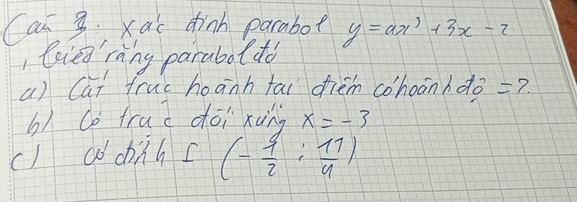 Câu 3. Xác định parabol y = ax² + 3x - 2
, biết rằng parabol đó
a) Cắt trục hoành tại điểm có hoành độ = 2
b) Có trục đối xứng x = -3
c) Có đỉnh I (-1/2 ; 11/4)